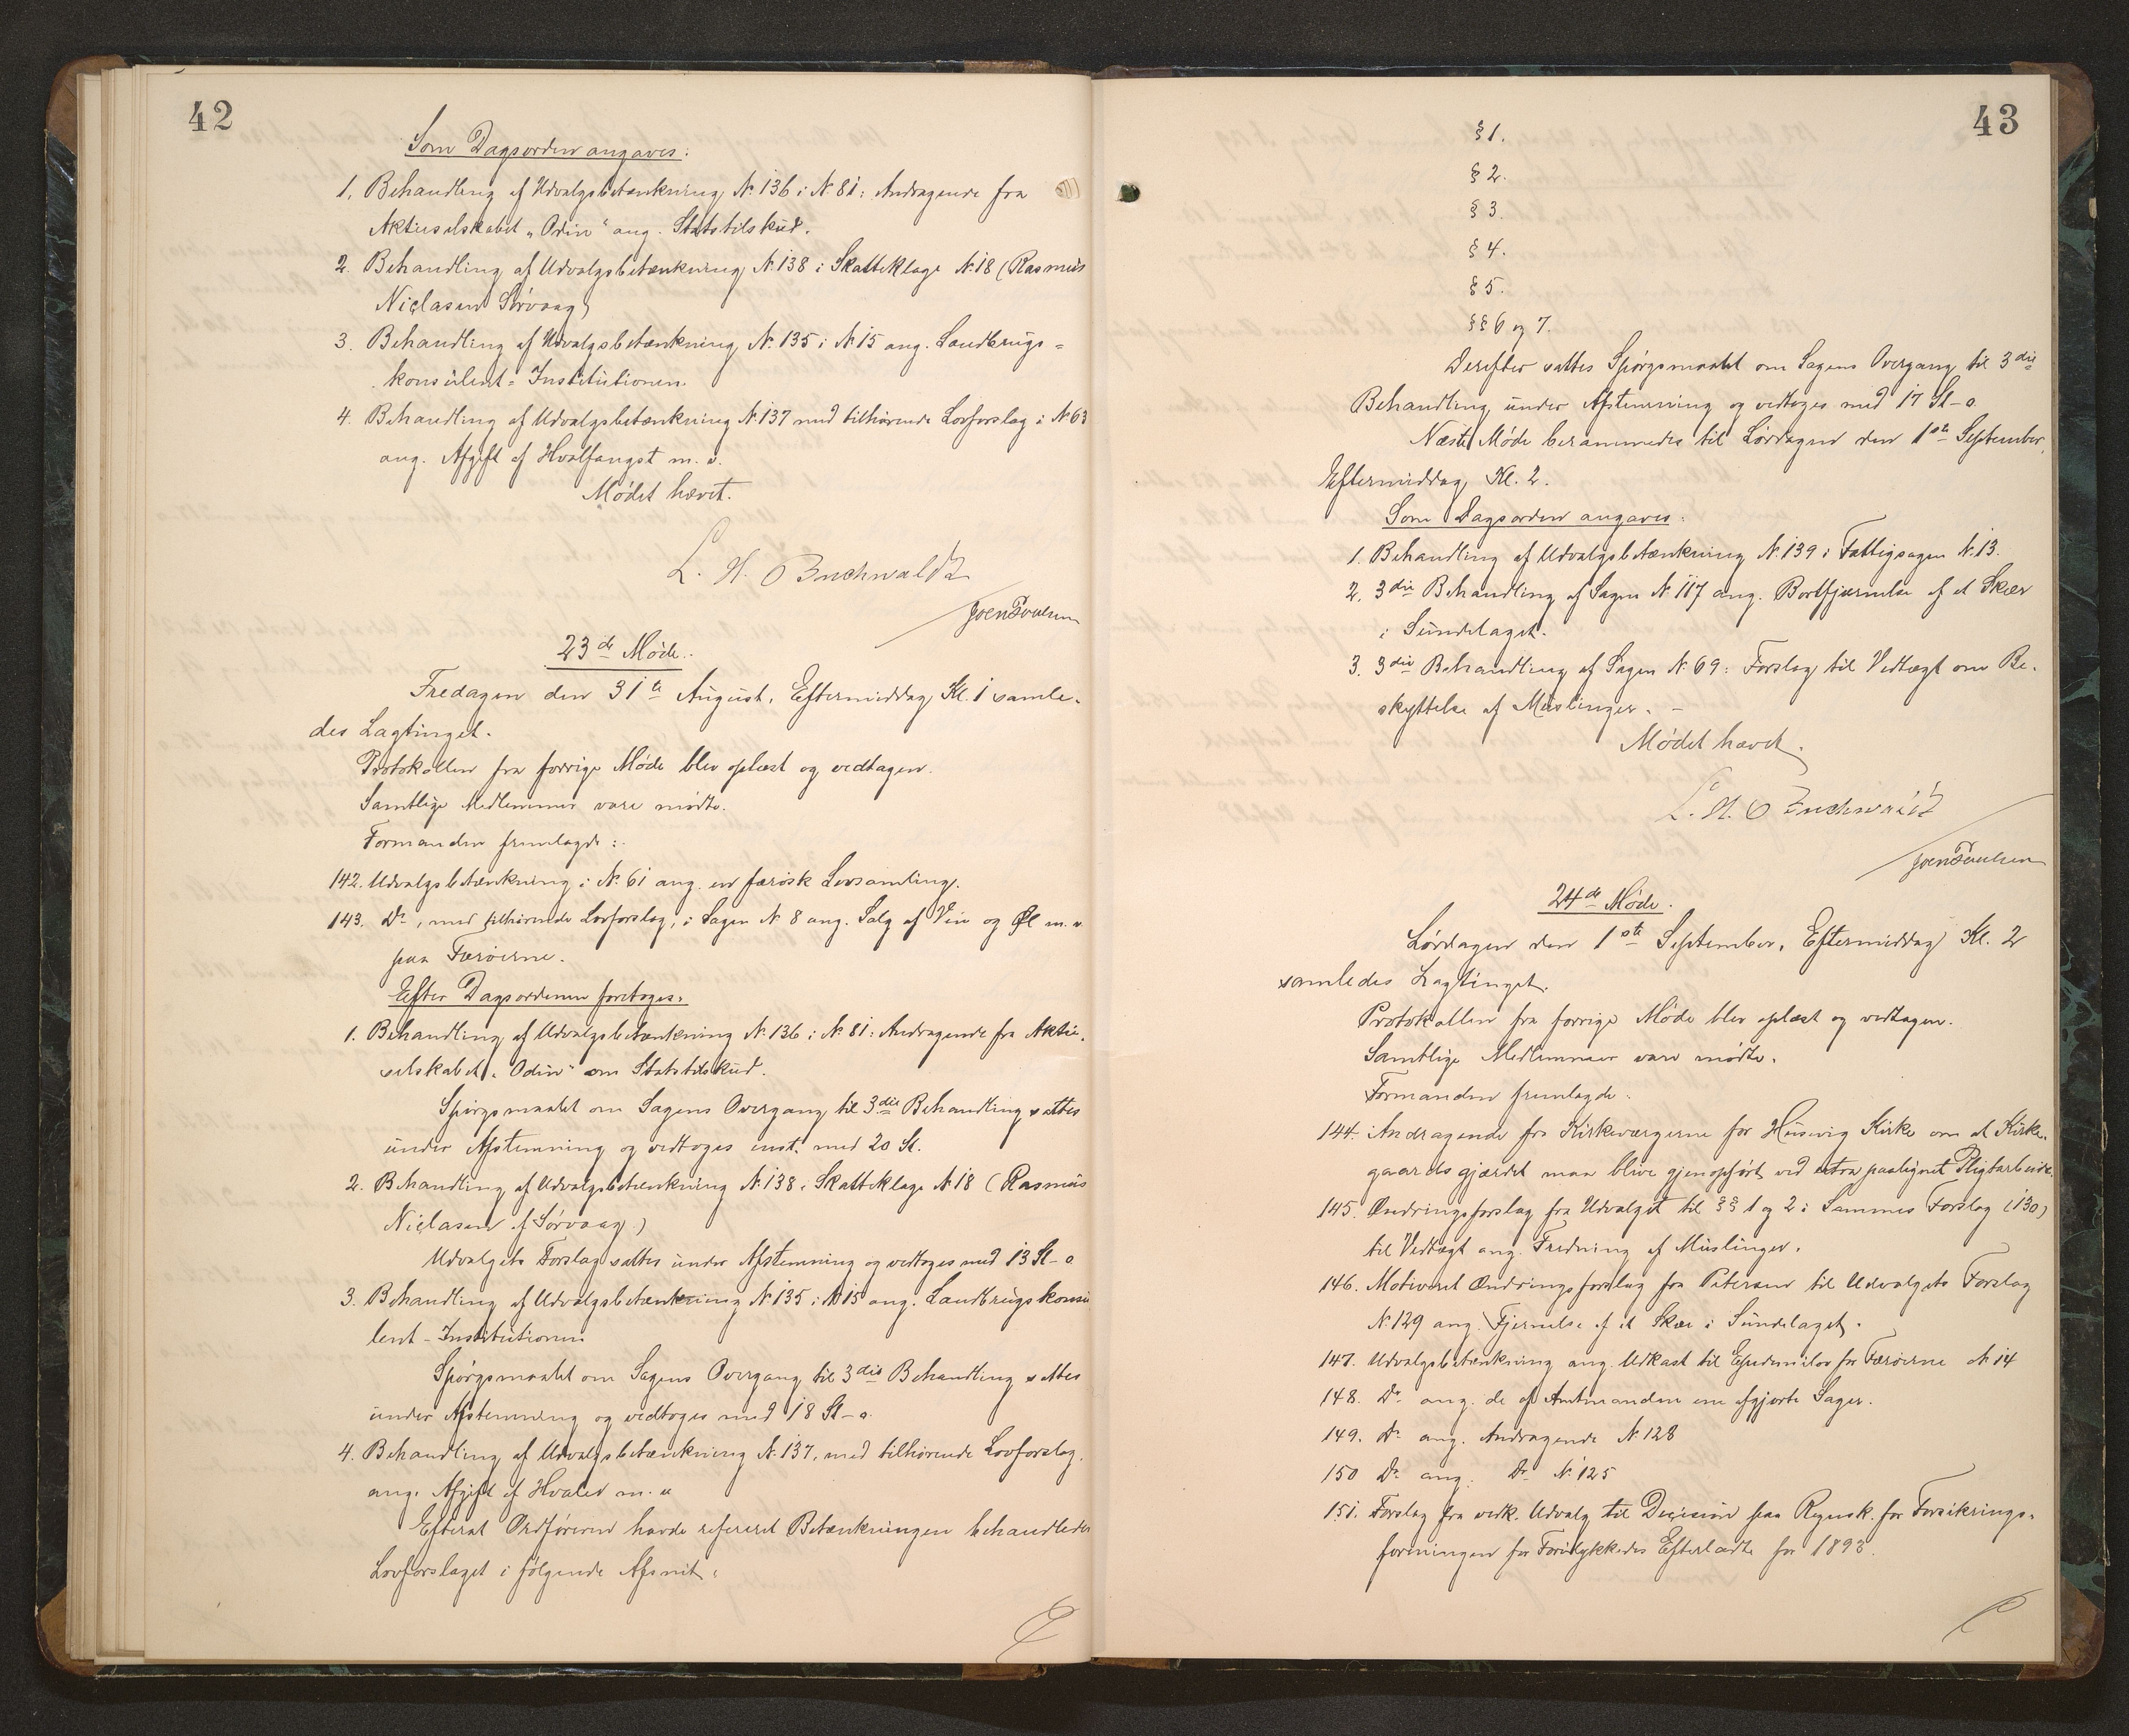 42
Som Dagsorden angaves:
1. Behandling af Udvalgsbetænkning N. 136 i N. 81: Andragende fra
Aktieselskabet „Odin“ ang. Statstilskud.
2. Behandling af Udvalgsbetænkning N. 138 i Skatteklage N. 18 (Rasmus
Niclasen Sørvaag)
3. Behandling af Udvalgsbetænkning N. 135 i N. 15 ang. Landbrugs=
konsulent=Institutionen.
4. Behandling af Udvalgsbetænkning N. 137 med tilhørende Lovforslag i N. 63
ang. Afgift af Hvalfangst m. v.
Mødet hævet.
L. H. O Buchwaldt
Joen Poulsen
23de Møde.
Fredagen den 31te August, Eftermiddag Kl. 1 samle-
des Lagtinget.
Protokollen fra forrige Møde blev oplæst og vedtagen.
Samtlige Medlemmer vare mødte.
Formanden fremlagde:
142. Udvalgsbetænkning i N. 61 ang. en færøsk Lovsamling.
143. Do, med tilhørende Lovforslag, i Sagen N. 8 ang. Salg af Vin og Øl m. v
paa Færøerne.
Efter Dagsordenen foretoges:
1. Behandling af Udvalgsbetænkning N. 136 i N. 81: Andragende fra Aktie-
selskabet „Odin“ om Statstilskud.
Spørgsmaalet om Sagens Overgang til 3die Behandling sattes
under Afstemning og vedtoges enst. med 20 St.
2. Behandling af Udvalgsbetænkning N. 138 i Skatteklage N. 18 (Rasmus
Niclasen af Sørvaag)
Udvalgets Forslag sattes under Afstemning og vedtoges med 13 St-o
3. Behandling af Udvalgsbetænkning N. 135 i N. 15 ang. Landbrugskonsu
lent-Institutionen
Spørgsmaalet om Sagens Overgang til 3die Behandling sattes
under Afstemning og vedtoges med 18 St-o.
4. Behandling af Udvalgsbetænkning N. 137, med tilhørende Lovforslag,
ang. Afgift af Hvaler m. v
Efterat Ordføreren havde refereret Betænkningen behandledes
Lovforslaget i følgende Afsnit:
43
§ 1.
§ 2.
§ 3.
§ 4.
§ 5.
§§ 6 og 7.
Derefter sattes Spørgsmaalet om Sagens Overgang til 3die
Behandling under Afstemning og vedtoges med 17 St-o.
Næste Møde berammedes til Lørdagen den 1ste September,
Eftermiddag Kl. 2.
Som Dagsorden angaves:
1. Behandling af Udvalgsbetænkning N. 139 i Fattigsagen N. 13.
2. 3die Behandling af Sagen N. 117 ang. Bortfjærnelse af et Skær
i Sundelaget.
3. 3die Behandling af Sagen N. 69: Forslag til Vedtægt om Be-
skyttelse af Muslinger. –
Mødet hævet.
L. H. O Buchwaldt
Joen Poulsen
24de Møde.
Lørdagen den 1ste September, Eftermiddag Kl. 2
samledes Lagtinget.
Protokollen fra forrige Møde blev oplæst og vedtagen.
Samtlige Medlemmer vare mødte.
Formanden fremlagde:
144. Andragende fra Kirkeværgerne for Husevig Kirke om at Kirke-
gaardsgjærdet maa blive gjenopført ved extra paalignet Pligtarbeide.
145. Ændringsforslag fra Udvalget til §§ 1 og 2 i Sammes Forslag (130)
til Vedtægt ang. Fredning af Muslinger.
146. Motiveret Ændringsforslag fra Petersen til Udvalgets Forslag
N. 129 ang. Fjernelse af et Skær i Sundelaget.
147. Udvalgsbetænkning ang. Udkast til Epidemilov for Færøerne N. 14
148. Do ang. de af Amtmanden ene afgjorte Sager.
149. Do ang. Andragende N. 128
150 Do ang. Do N. 125
151. Forslag fra vedk. Udvalg til Decision paa Regnsk. for Forsikrings-
foreningen for Forulykkedes Efterladte for 1893.